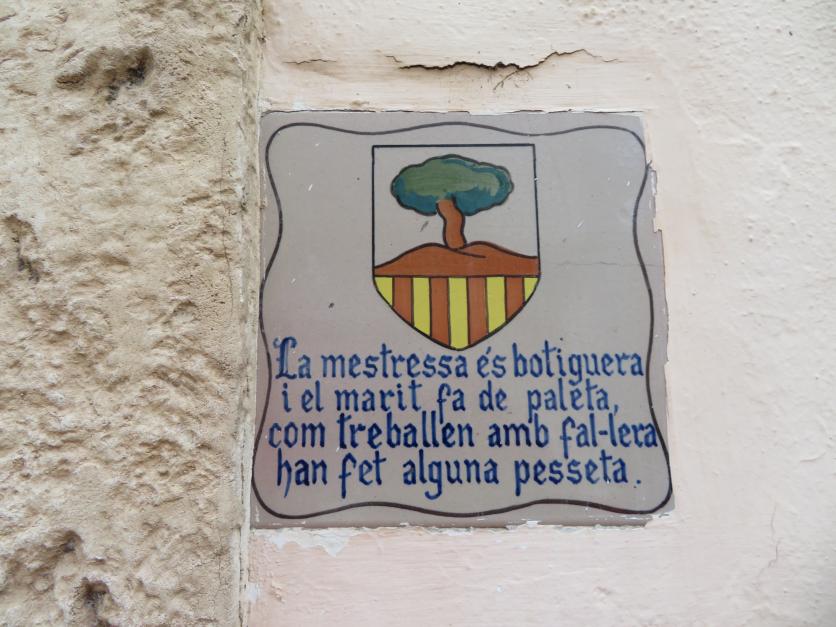 La mestressa és botiguera
i el marit fa de paleta,
com treballen amb fal-lera
han fet alguna pesseta.